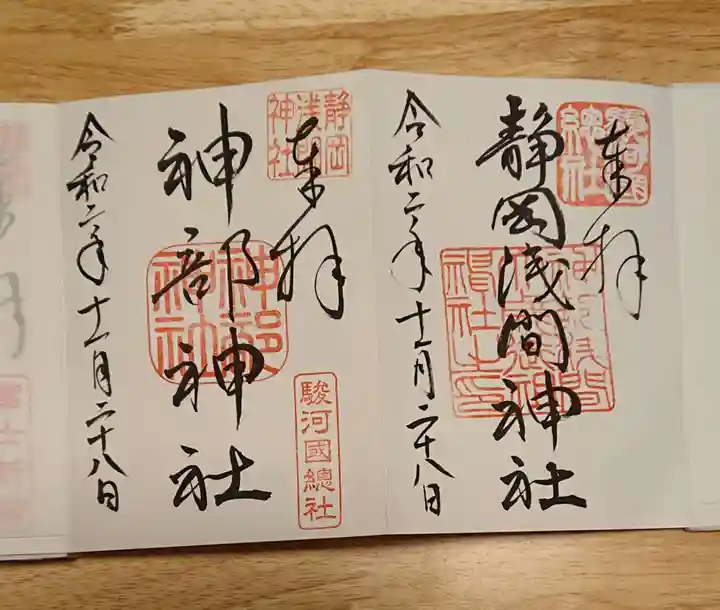 奉拝
静岡浅間神社
令和二年十一月二十八日
静岡
浅間
神社
奉拝
神部神社
神部
神社
駿河國總社
令和二年十一月二十八日